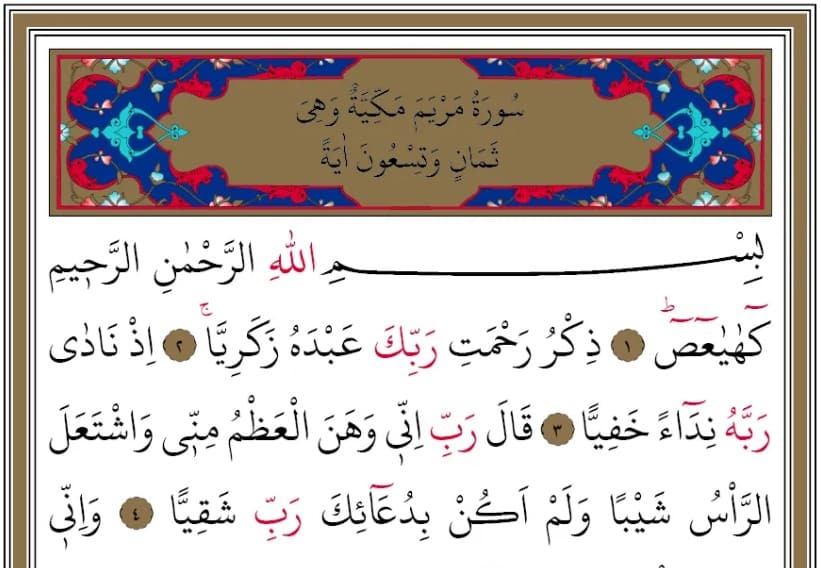 سُورَةُ مَرْيَمَ مَكِّيَّةٌ وَهِىَ
ثَمَانٍ وَتِسْعُونَ اٰيَةً
بِسْمِ اللّٰهِ الرَّحْمٰنِ الرَّح۪يمِ
كٓهٰيٰعٓصٓۜ ﴿١﴾ ذِكْرُ رَحْمَتِ رَبِّكَ عَبْدَهُ زَكَرِيَّاۚ ﴿٢﴾ اِذْ نَادٰى
رَبَّهُ نِدَٓاءً خَفِيًّا ﴿٣﴾ قَالَ رَبِّ اِنّ۪ي وَهَنَ الْعَظْمُ مِنّ۪ي وَاشْتَعَلَ
الرَّأْسُ شَيْبًا وَلَمْ اَكُنْ بِدُعَٓائِكَ رَبِّ شَقِيًّا ﴿٤﴾ وَاِنّ۪ي